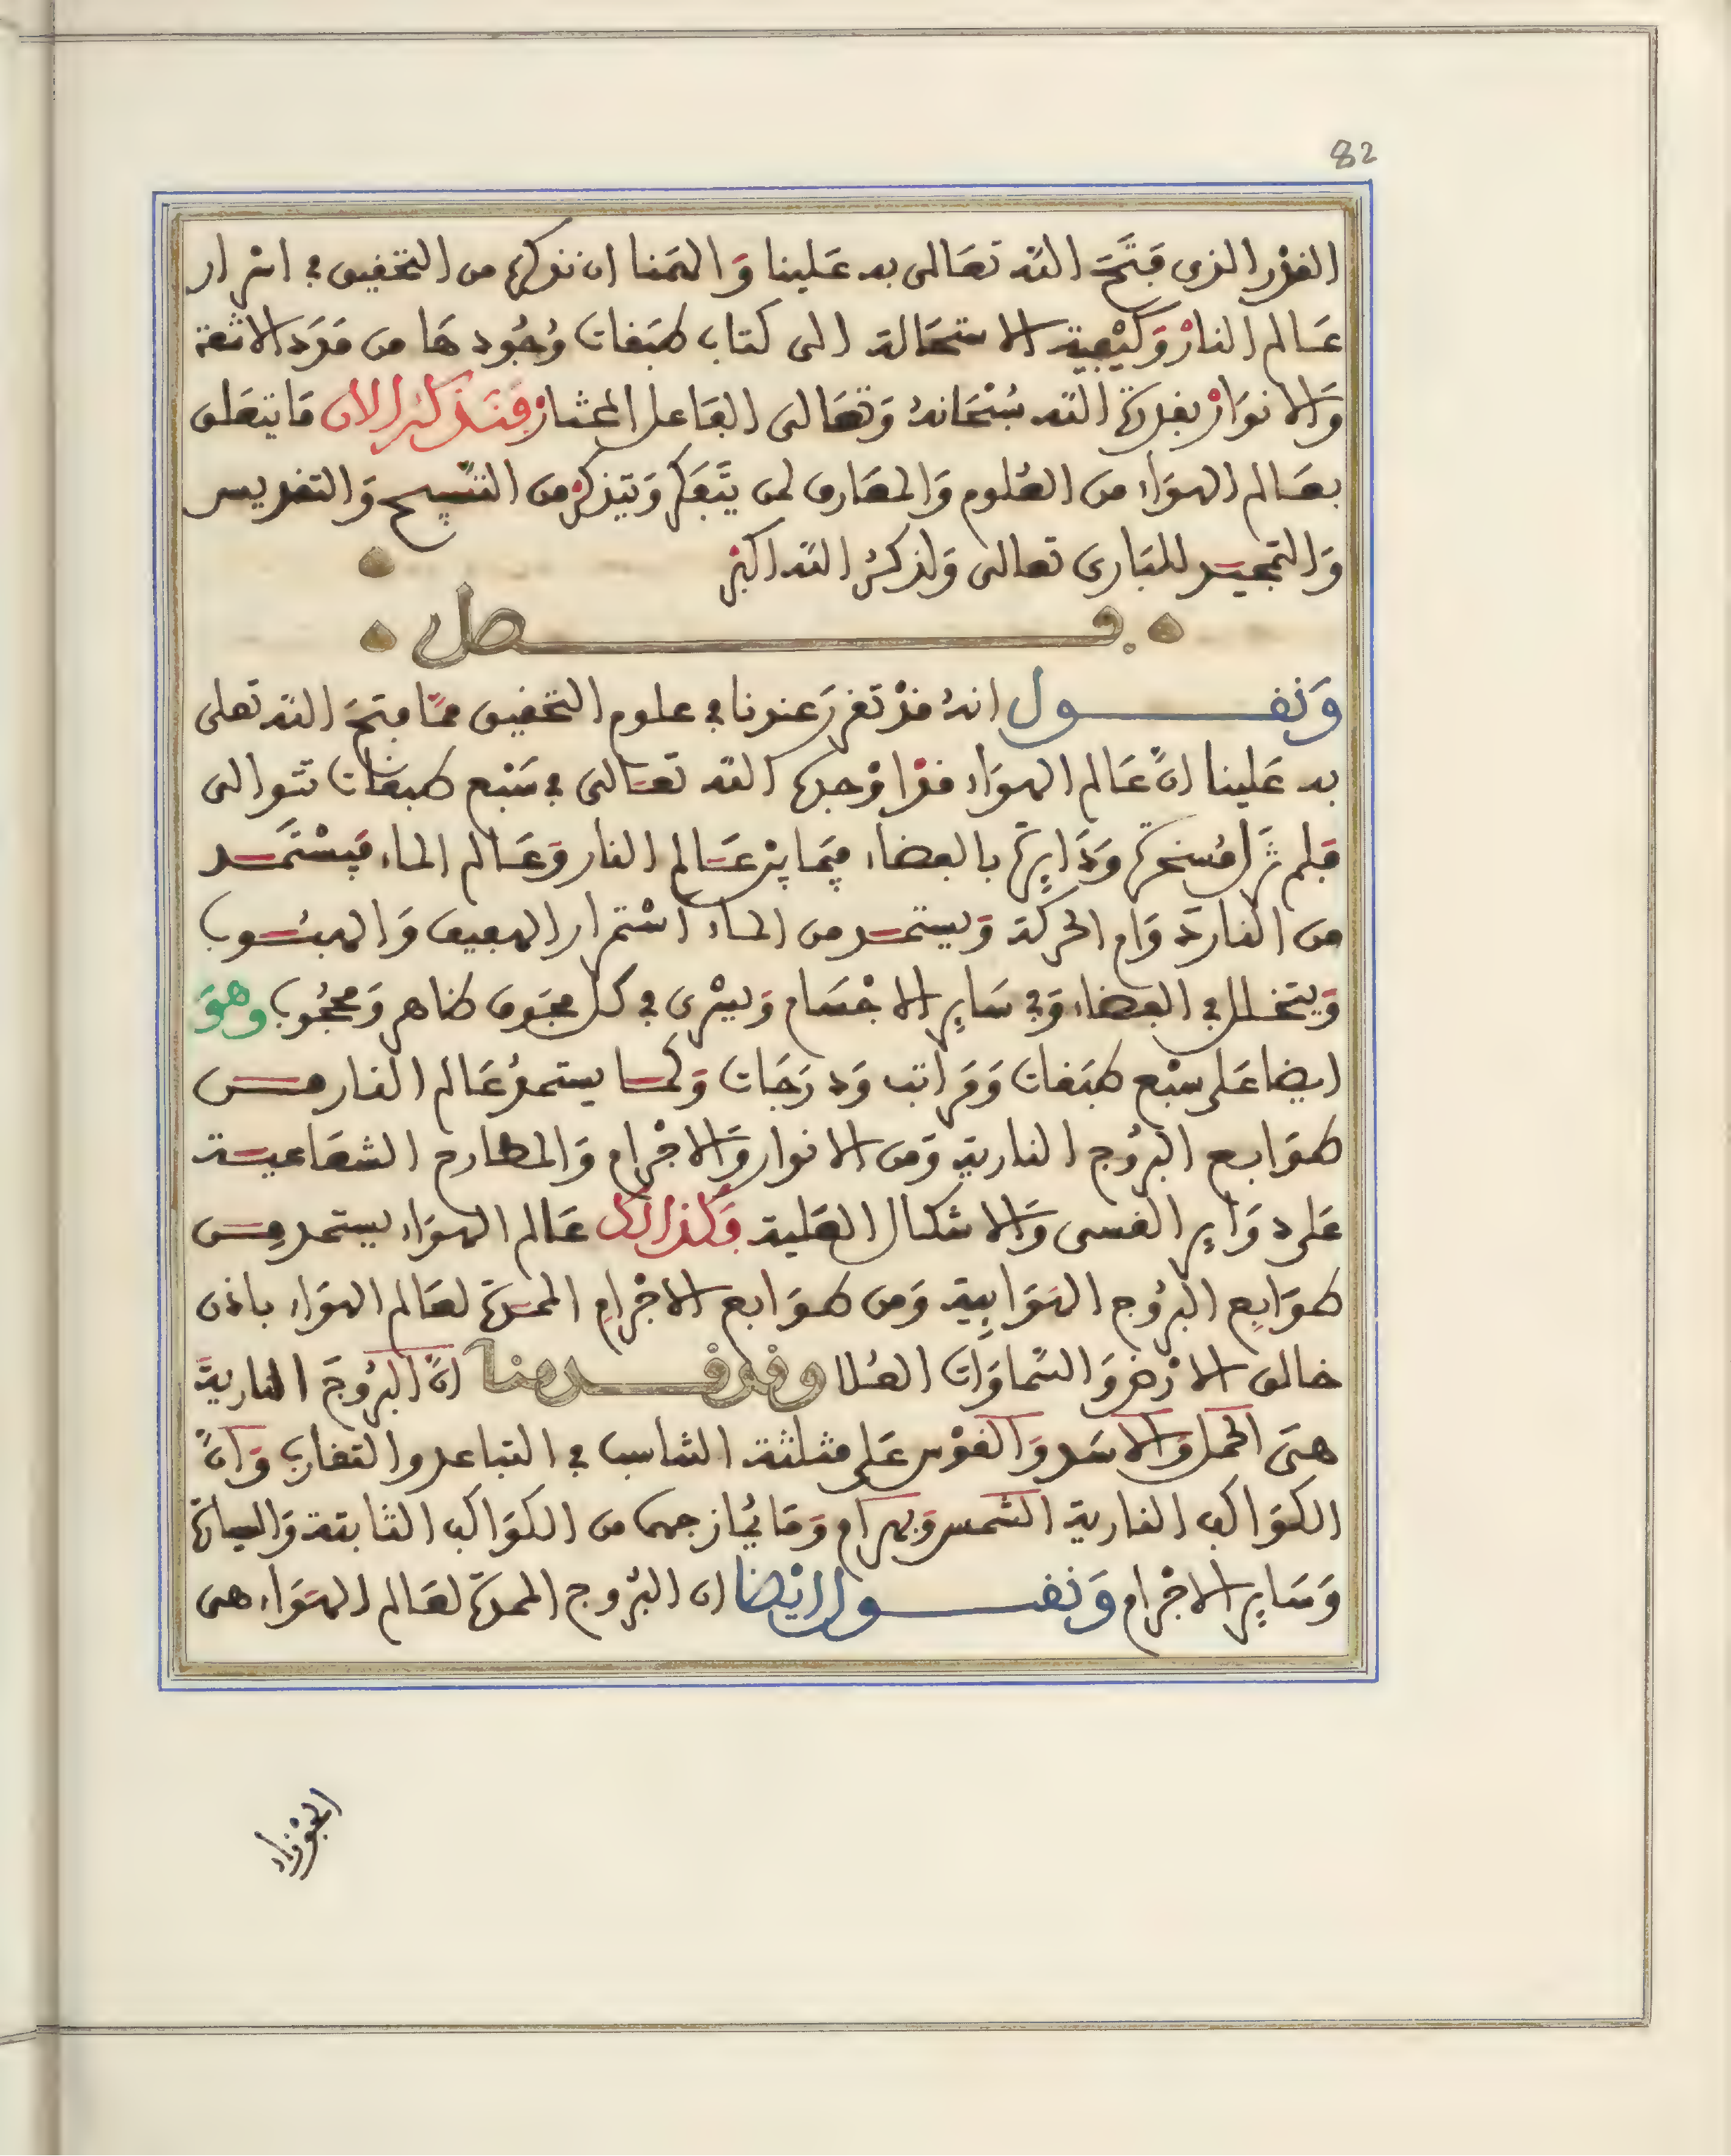 82
القدر الذى فتح الله تعالى به علينا والهمنا ان نذكره من التحقيق في اسرار
عالم النار وكيفية الاستحالة الى كتاب طبقات وجودها من مدد الاشعة
والانوار بقدرة الله سبحانه وتعالى الفاعل المختار فنذكر الان ما يتعلق
بعالم الهواء من العلوم والمعارف لمن يتفكر ويتذكر من التسبيح والتقديس
والتمجيد للبارى تعالى ولذكر الله اكبر
فصل
ونقول انه قد تقرر عندنا في علوم التحقيق مما فتح الله تعلى
به علينا ان عالم الهواء قد اوجده الله تعالى في سبع طبقات تتوالى
فلم تزل مسخرة ودايرة بالفضاء فيما بين عالم النار وعالم الماء فيستمد
من النار دوام الحركة ويستمد من الماء استمرار الهفيف والهبوب
ويتخلل في الفضاء وفي ساير الاجسام ويسرى في كل مجوف ظاهر ومحجوب وهو
ايضا على سبع طبقات ومراتب ودرجات وكما يستمد عالم النار من
طوابع البروج النارية ومن الانوار والاجرام والمطارح الشعاعية
على دواير القسى والاشكال العلية فكذالك عالم الهواء يستمد من
طوابع البروج الهوايية ومن طوابع الاجرام الممدة لعالم الهواء باذن
خالق الارض والسماوات العلا وقد قدمنا ان البروج النارية
هى الحمل والاسد والقوس على مثلثة التناسب في التباعد والتقارب وان
الكواكب النارية الشمس وبهرام وما يمازجهما من الكواكب الثابتة والسيارة
وساير الاجرام ونقول ايضا ان البروج الممدة لعالم الهواء هى
الجوزاء